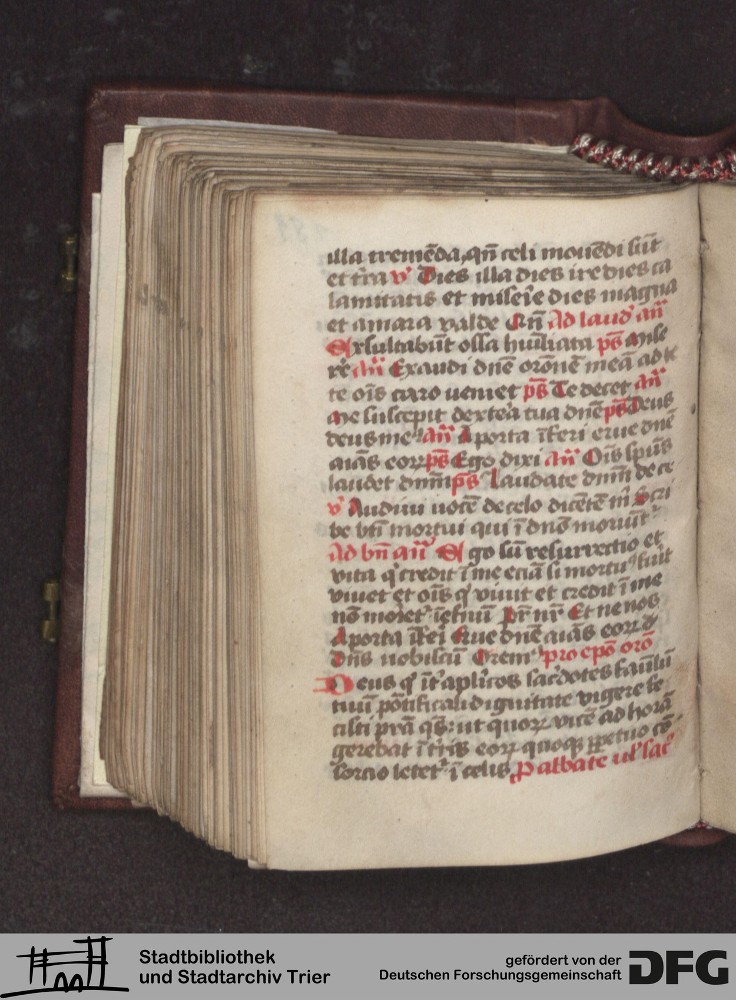 illa tremēda, qn̄ celi mouēdi sūt
et tr̄a v̓ Dies illa dies ire dies ca
lamitatis et miseīe dies magna
et amara valde an̄ Ad laud' an̄
Exsultabūt ossa huīliata ps̄ Mise
re an̄ Exaudi dnē oronē meā ad
te oīs caro ueniet ps̄ Te decet an̄
Me suscepit dextera tua dnē ps̄ Deus
deus me9 an̄ A porta īferi erue dnē
aīas eorꝝ ps̄ Ego dixi an̄ Oīs spūs
laudet dnm̄ ps̄ Laudate dnm̄ de ce
v̓ Audiui uocē de celo dicētē m̄ Scri
be btī mortui qui ī dno moriūt᷑
Ad bn̄ an̄ Ego sū resurrectio et
vita q̓ credit ī me eciā si mortu9 fuit
viuet et oīs q̓ viuit et credit ī me
nō moret᷑ īet̓nū pr̄ nr̄ Et ne nos
A porta īfeī Erue dnē aīas eorꝝ
Dn̄s uobiscū Orem9 pro epō orō
Deus q̓ īt̓ ap̄licos sac̓dotes famlū
tuū pōtificali dignitate vigere fe
cisti prā qs̄: ut quorꝝ vicē ad horā
gerebat ī t̓ris eorꝝ quoqꝫ ꝑpetuo cō
sorcio letet᷑ ī celis P abbate ul̓ sac̓
Stadtbibliothek
und Stadtarchiv Trier
gefördert von der
Deutschen Forschungsgemeinschaft
DFG